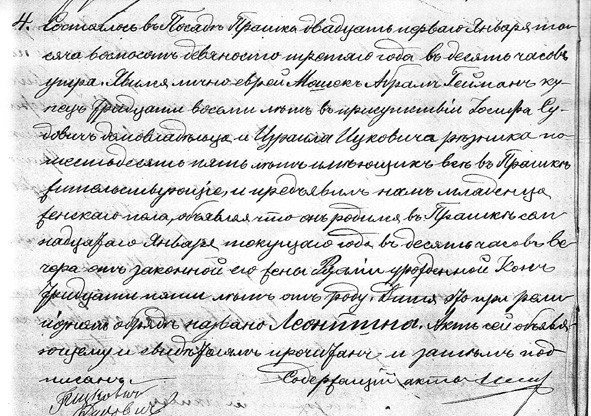 4. Состоялось въ Посадѣ Прашка двадцать перваго Января ты-
сяча восмосотъ девяносто третяго года въ десять часовъ
утра. Явился лично еврей Мошек Абрам Гейманъ ку-
пецъ тридцати восьми лѣтъ въ присутствіи Іосифа Су-
довичъ домовладѣльца и Израиля Ицковича рѣзника по
шестодесять пять лѣтъ имѣющихъ всѣ въ Прашкѣ
жительствующіе, и предъявилъ намъ младенца
женскаго пола, объявляя что онъ родился въ Прашкѣ сем-
надцатаго Января текущаго года въ десять часовъ ве-
чера отъ законной его жены Рузаліи урожденной Конъ
тридцати пяти лѣтъ отъ роду. Дитя это при рели-
гіозномъ обрядѣ названо Леонтина. Актъ сей объявля-
ющему и свидѣтелямъ прочитанъ и затѣмъ под-
писанъ. Содержащій акты
Ицковичъ